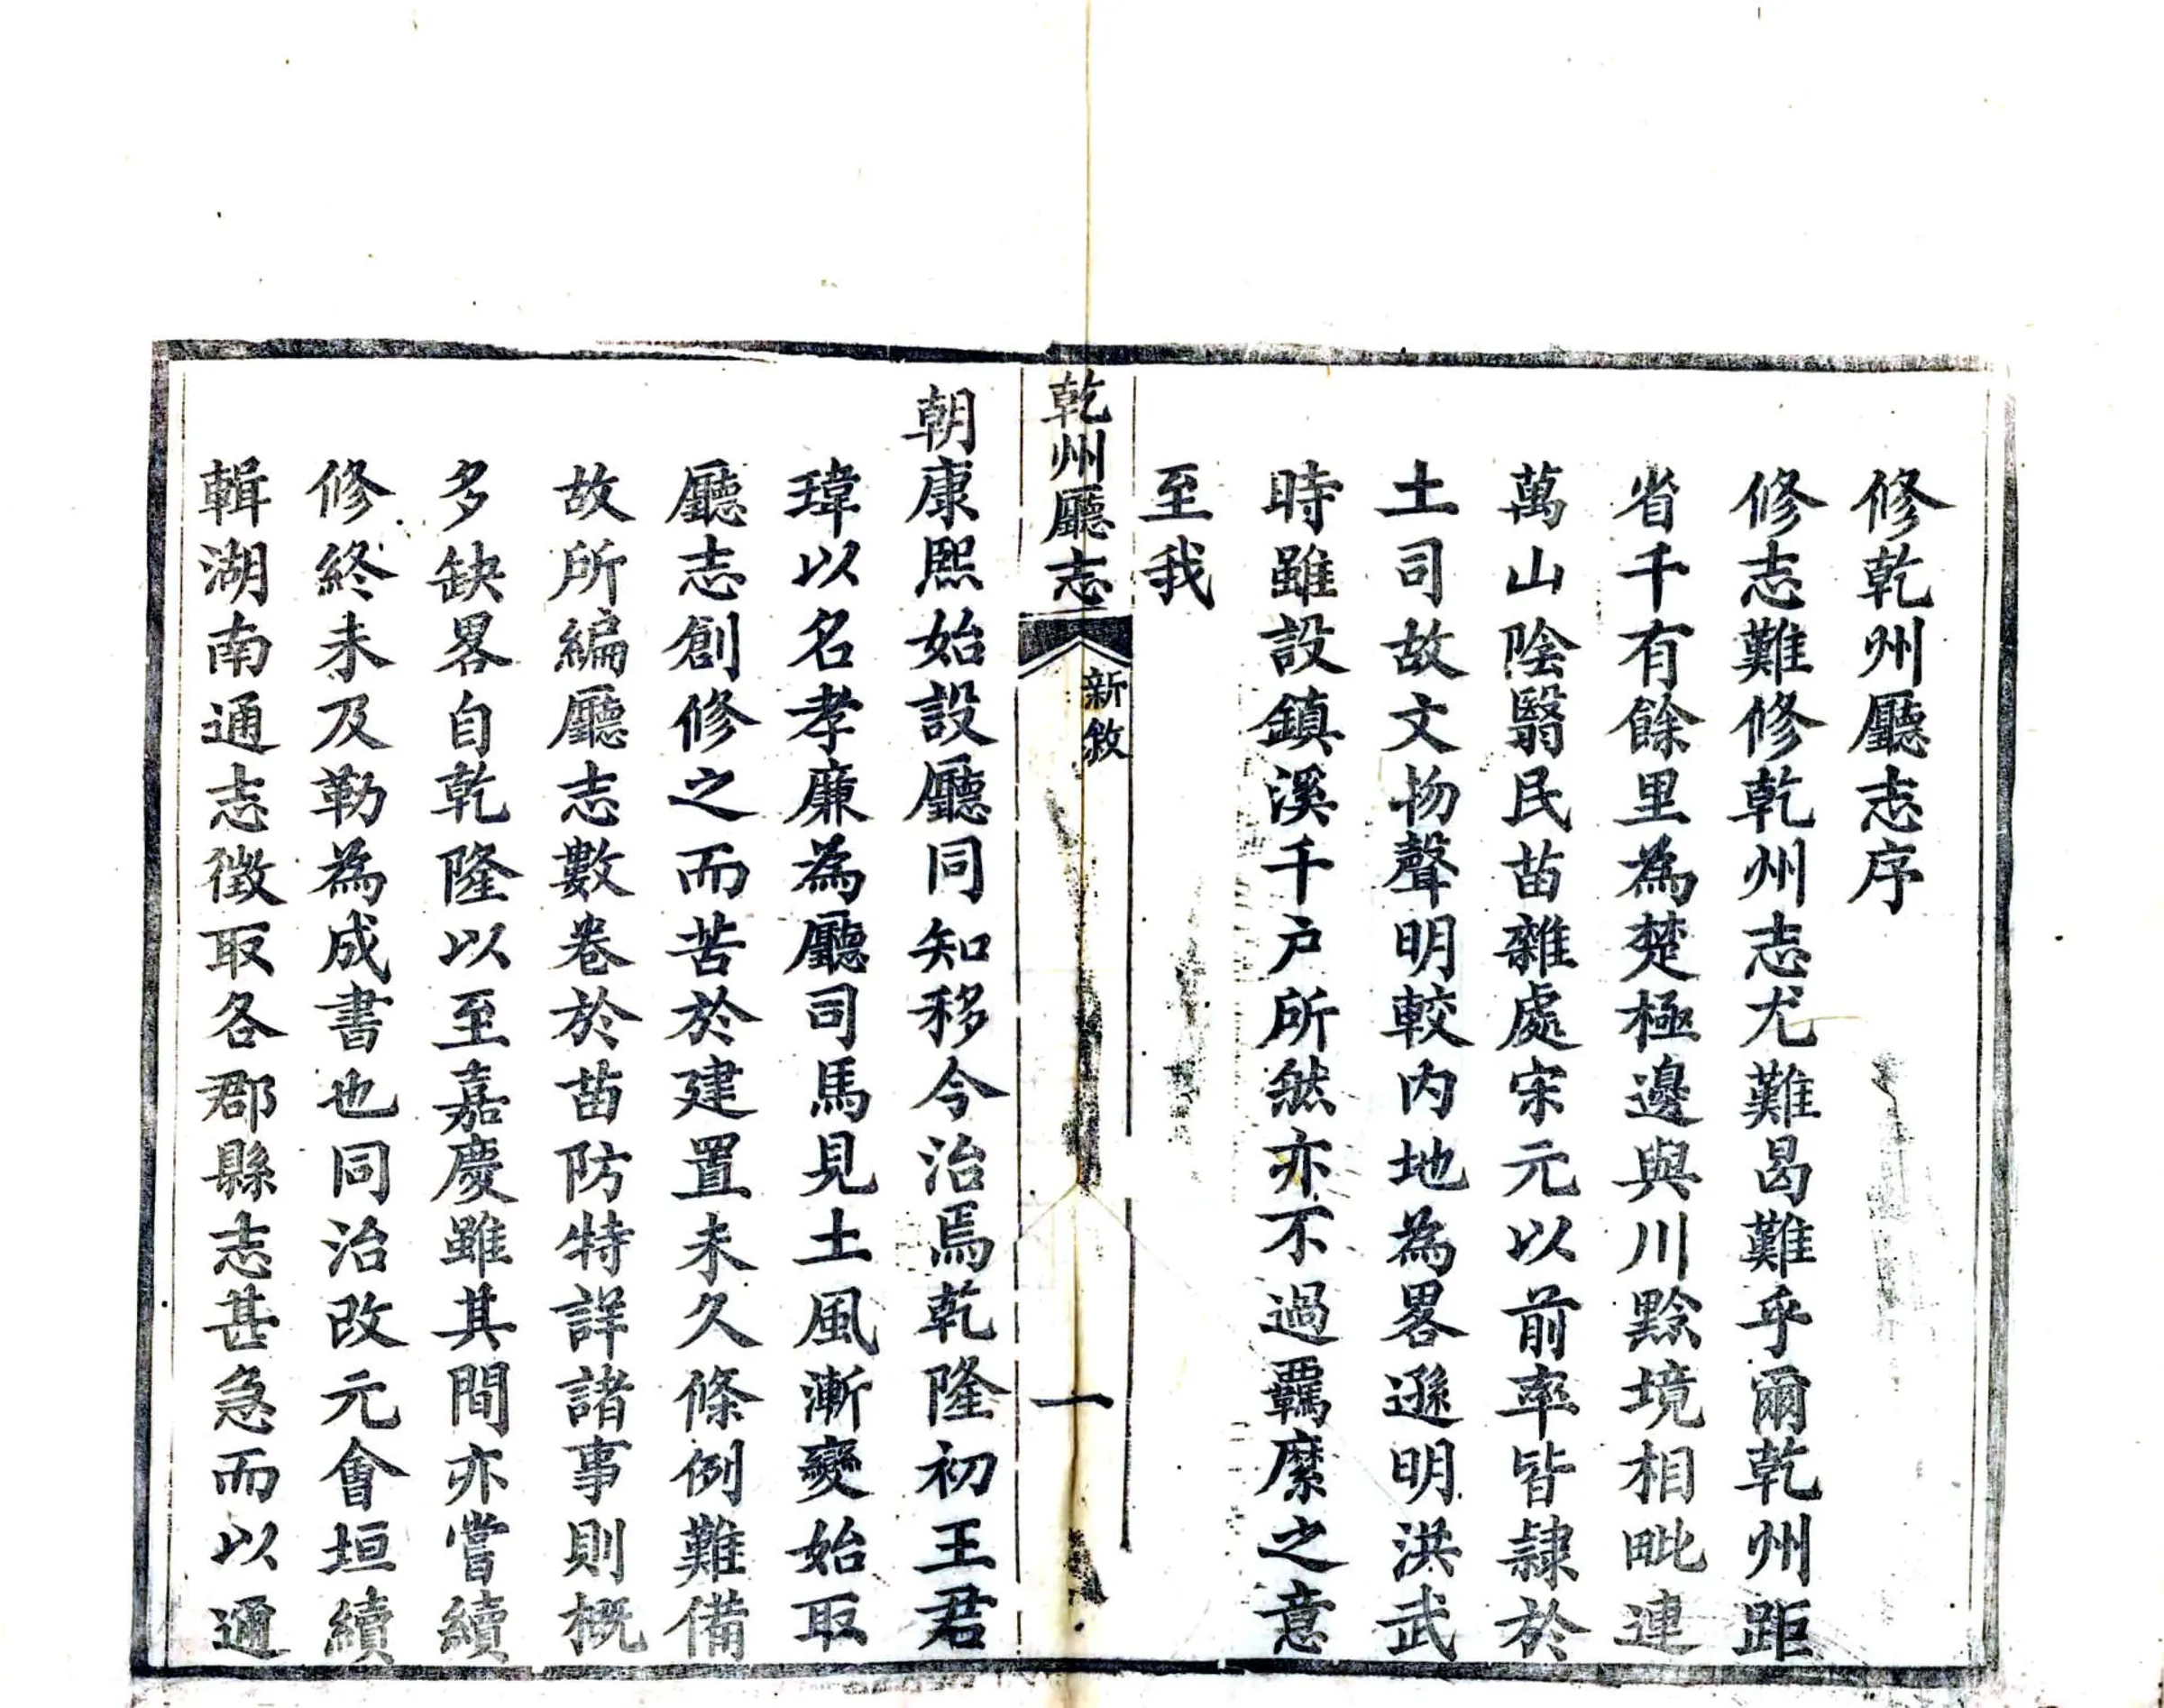 修乾州廳志序
修志難修乾州志尤難曷難乎爾乾州距
省千有餘里為楚極邊與川黔境相毗連
萬山陰翳民苗雜處宋元以前率皆隷於
土司故文物聲明較內地為畧遜明洪武
時雖設鎮溪千户所然亦不過羈縻之意
至我
乾州廳志
新敘
一
朝康熙始設廳同知移今治焉乾隆初王君
瑋以名孝廉為廳司馬見土風漸變始取
廳志創修之而苦於建置未久條例難備
故所編廳志數卷於苗防特詳諸事則概
多缺畧自乾隆以至嘉慶雖其間亦嘗續
修終未及勒為成書也同治改元會垣續
輯湖南通志徵取各郡縣志甚急而以通